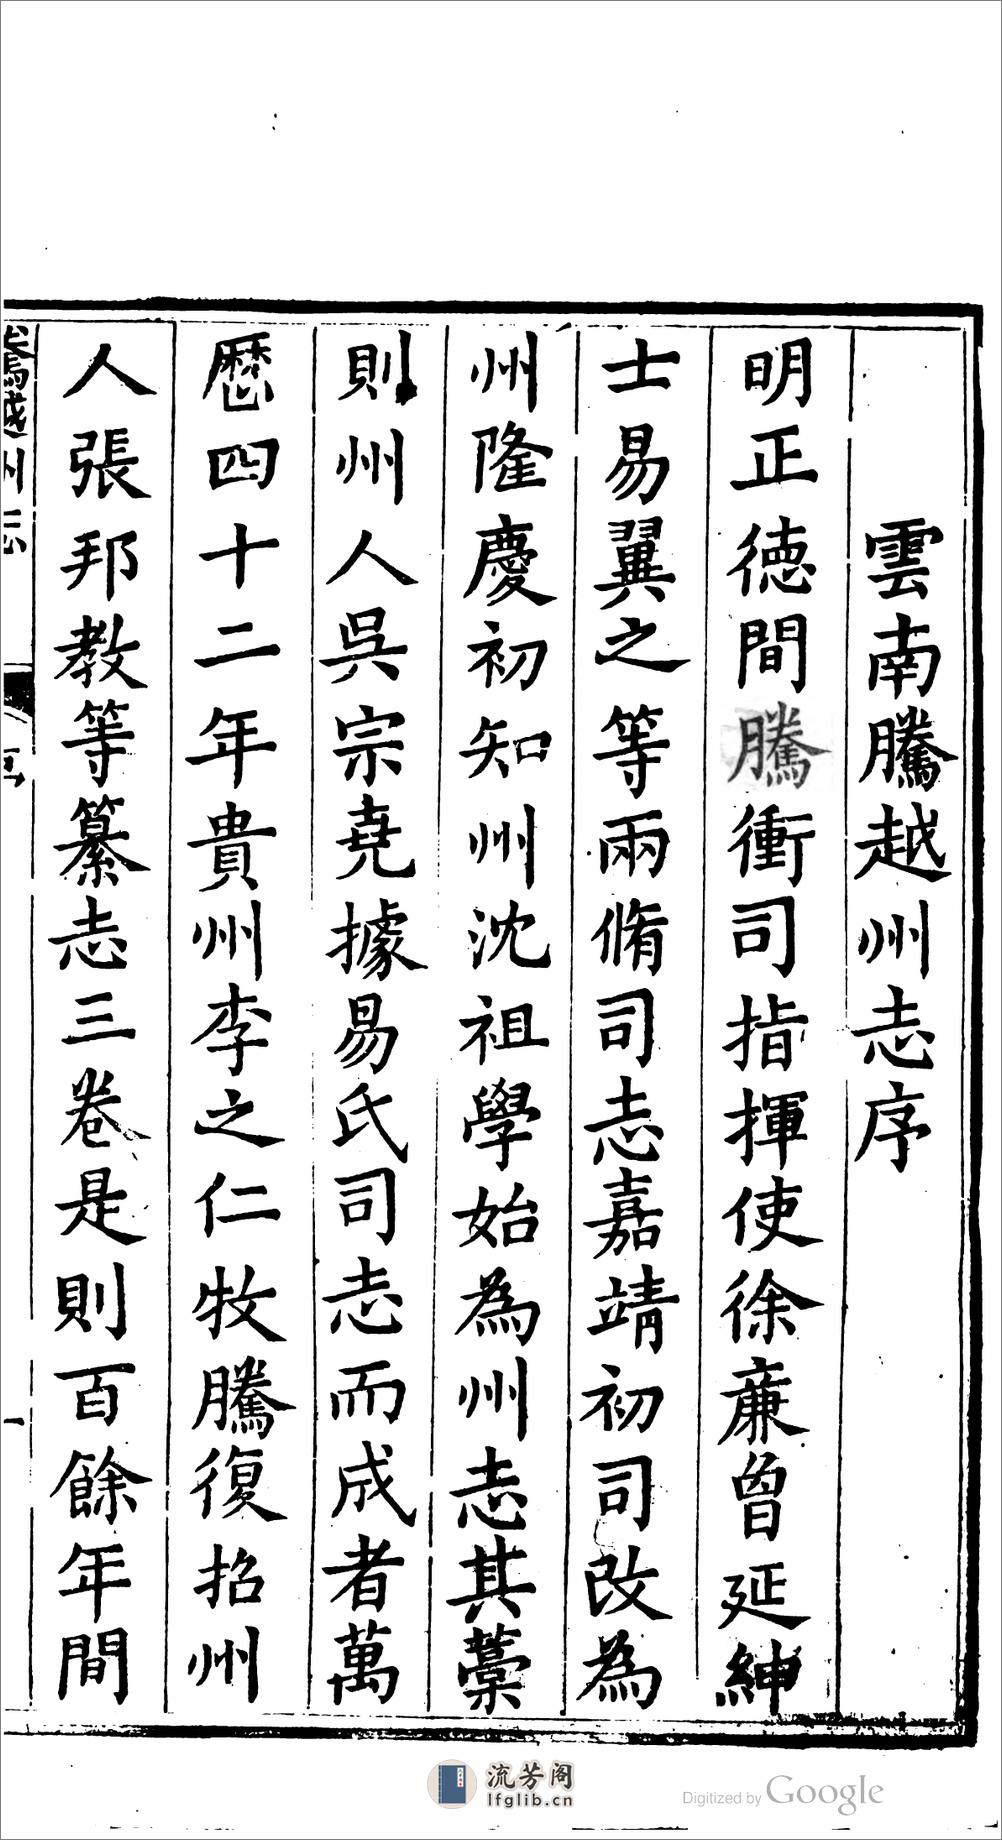 雲南騰越州志序
明正德間騰衝司指揮使徐亷曾延紳
士易翼之等兩脩司志嘉靖初司改為
州隆慶初知州沈祖學始為州志其藁
則州人吳宗堯據易氏司志而成者萬
歷四十二年貴州李之仁牧騰復招州
人張邦教等纂志三卷是則百餘年間
騰越州志
一
流芳阁
lfglib.cn
Digitized by Google